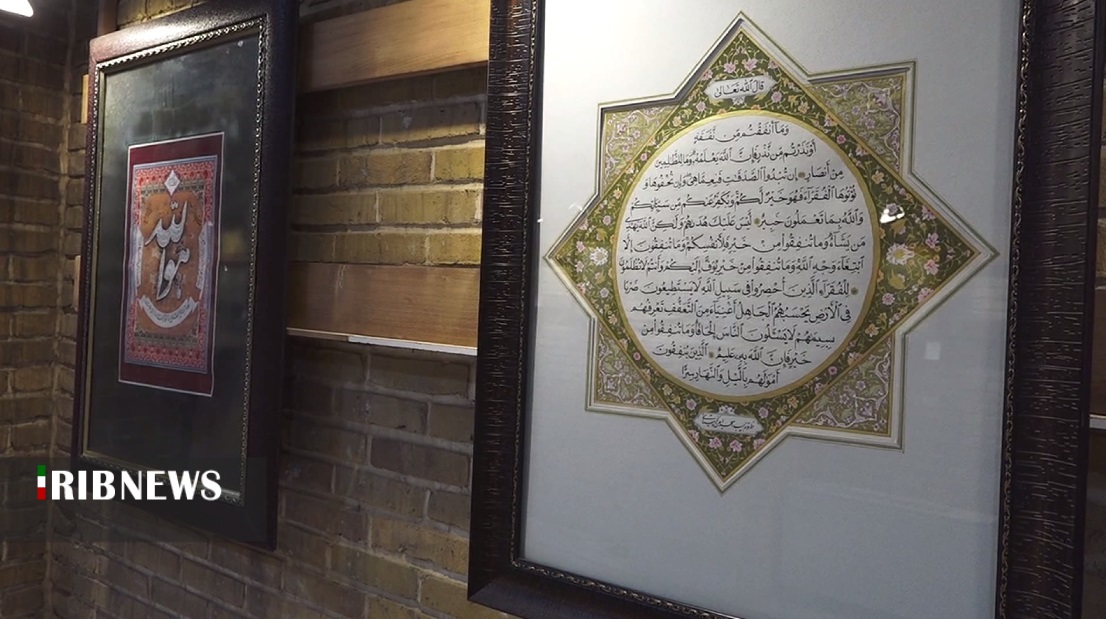 هوالله
قَالَ اللّٰهُ تَعَالىٰ
وَمَآ أَنفَقْتُم مِّن نَّفَقَةٍ
أَوْ نَذَرْتُم مِّن نَّذْرٍ فَإِنَّ اللَّهَ يَعْلَمُهُ وَمَا لِلظَّٰلِمِينَ
مِنْ أَنصَارٍ إِن تُبْدُوا الصَّدَقَٰتِ فَنِعِمَّا هِيَ وَإِن تُخْفُوهَا وَ
تُؤْتُوهَا الْفُقَرَآءَ فَهُوَ خَيْرٌ لَّكُمْ وَيُكَفِّرُ عَنكُم مِّن سَيِّئَاتِكُمْ
وَاللَّهُ بِمَا تَعْمَلُونَ خَبِيرٌ لَّيْسَ عَلَيْكَ هُدَىٰهُمْ وَلَٰكِنَّ اللَّهَ يَهْدِي
مَن يَشَآءُ وَمَا تُنفِقُوا مِنْ خَيْرٍ فَلِأَنفُسِكُمْ وَمَا تُنفِقُونَ إِلَّا
ابْتِغَآءَ وَجْهِ اللَّهِ وَمَا تُنفِقُوا مِنْ خَيْرٍ يُوَفَّ إِلَيْكُمْ وَأَنتُمْ لَا تُظْلَمُونَ
لِلْفُقَرَآءِ الَّذِينَ أُحْصِرُوا فِي سَبِيلِ اللَّهِ لَا يَسْتَطِيعُونَ ضَرْبًا
فِي الْأَرْضِ يَحْسَبُهُمُ الْجَاهِلُ أَغْنِيَآءَ مِنَ التَّعَفُّفِ تَعْرِفُهُم
بِسِيمَٰهُمْ لَا يَسْئَلُونَ النَّاسَ إِلْحَافًا وَمَا تُنفِقُوا مِنْ
خَيْرٍ فَإِنَّ اللَّهَ بِهِ عَلِيمٌ الَّذِينَ يُنفِقُونَ
أَمْوَٰلَهُم بِاللَّيْلِ وَالنَّهَارِ سِرًّا
IRIBNEWS